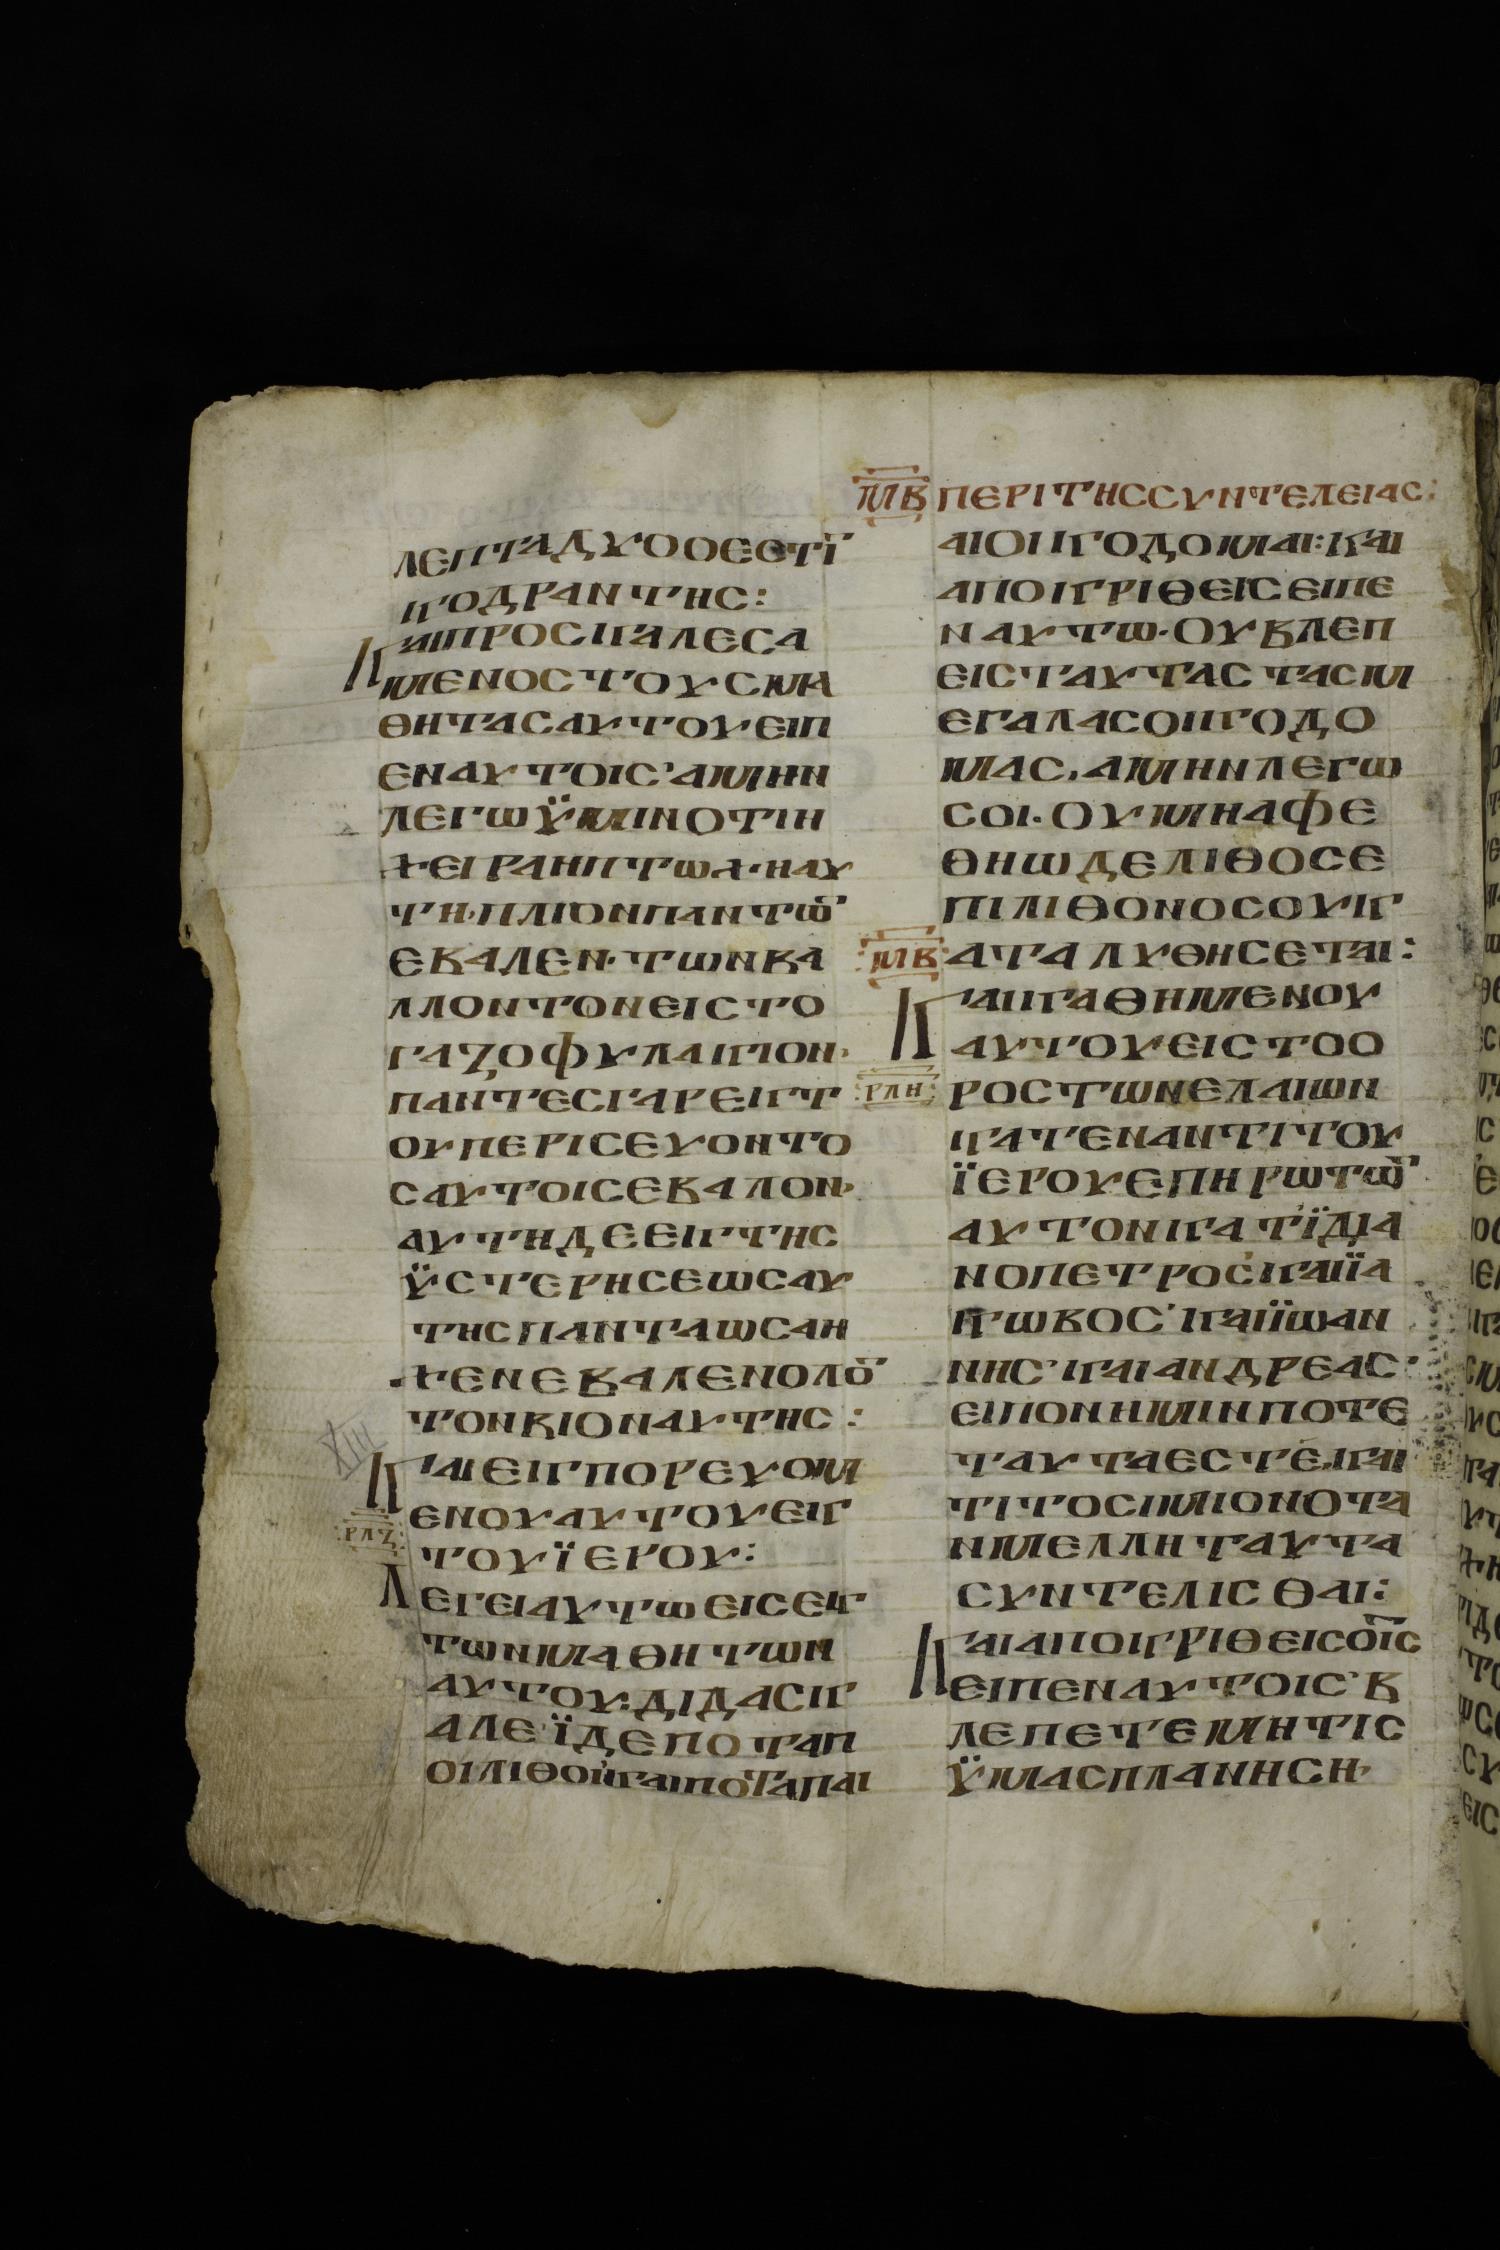 ΜΒ ΠΕΡΙΤΗΣΣΥΝΤΕΛΕΙΑΣ:
ΛΕΠΤΑΔΥΟΟΕΣΤΙ̅
ΚΟΔΡΑΝΤΗΣ:
ΚΑΙΠΡΟΣΚΑΛΕΣΑ
ΜΕΝΟΣΤΟΥΣΜΑ
ΘΗΤΑΣΑΥΤΟΥΕΙΠ
ΕΝΑΥΤΟΙΣ'ΑΜΗΝ
ΛΕΓΩΫΜΙΝΟΤΙΗ
ΧΕΙΡΑΗΠΤΩΧ·ΗΑΥ
ΤΗ·ΠΛΙΟΝΠΑΝΤΩ̅
ΕΒΑΛΕΝ·ΤΩΝΒΑ
ΛΛΟΝΤΟΝΕΙΣΤΟ
ΓΑΖΟΦΥΛΑΚΙΟΝ·
ΠΑΝΤΕΣΓΑΡΕΚΤ
ΟΥΠΕΡΙΣΕΥΟΝΤΟ
ΣΑΥΤΟΙΣΕΒΑΛΟΝ·
ΑΥΤΗΔΕΕΚΤΗΣ
ΫΣΤΕΡΗΣΕΩΣΑΥ
ΤΗΣΠΑΝΤΑΩΣΑΗ
ΧΕΝΕΒΑΛΕΝΟΛΟ̅
ΤΟΝΒΙΟΝΑΥΤΗΣ:
XIII
ΚΑΙΕΚΠΟΡΕΥΟΜ
ΕΝΟΥΑΥΤΟΥΕΚ
ΡΛΖ
ΤΟΥΪΕΡΟΥ:
ΛΕΓΕΙΑΥΤΩΕΙΣΕΚ
ΤΩΝΜΑΘΗΤΩΝ
ΑΥΤΟΥ:ΔΙΔΑΣΚ
ΑΛΕΪΔΕΠΟΤΑΠ
ΟΙΛΙΘΟΙΚΑΙΠΟΤΑΠΑΙ
ΑΙΟΙΚΟΔΟΜΑΙ:ΚΑΙ
ΑΠΟΚΡΙΘΕΙΣΕΙΠΕ
ΝΑΥΤΩ·ΟΥΒΛΕΠ
ΕΙΣΤΑΥΤΑΣΤΑΣΜ
ΕΓΑΛΑΣΟΙΚΟΔΟ
ΜΑΣ,ΑΜΗΝΛΕΓΩ
ΣΟΙ·ΟΥΜΗΑΦΕ
ΘΗΩΔΕΛΙΘΟΣΕ
ΠΙΛΙΘΟΝΟΣΟΥΚ
ΜΒ ΑΤΑΛΥΘΗΣΕΤΑΙ:
ΚΑΙΚΑΘΗΜΕΝΟΥ
ΑΥΤΟΥΕΙΣΤΟΟ
ΡΛΗ ΡΟΣΤΩΝΕΛΑΙΩΝ
ΚΑΤΕΝΑΝΤΙΤΟΥ
ΪΕΡΟΥΕΠΗΡΩΤΩ̅
ΑΥΤΟΝΚΑΤΪΔΙΑ
ΝΟΠΕΤΡΟΣ·ΚΑΙΪΑ
ΚΩΒΟΣ'ΚΑΙΪΩΑΝ
ΝΗΣ'ΚΑΙΑΝΔΡΕΑΣ·
ΕΙΠΟΝΗΜΙΝΠΟΤΕ
ΤΑΥΤΑΕΣΤΕ·ΚΑΙ
ΤΙΤΟΣΙΜΙΟΝΟΤΑ
ΝΜΕΛΛΗΤΑΥΤΑ
ΣΥΝΤΕΛΙΣΘΑΙ:
ΚΑΙΑΠΟΚΡΙΘΕΙΣΟΙ̅Σ̅
ΕΙΠΕΝΑΥΤΟΙΣ'Β
ΛΕΠΕΤΕΜΗΤΙΣ
ΫΜΑΣΠΛΑΝΗΣΗ·